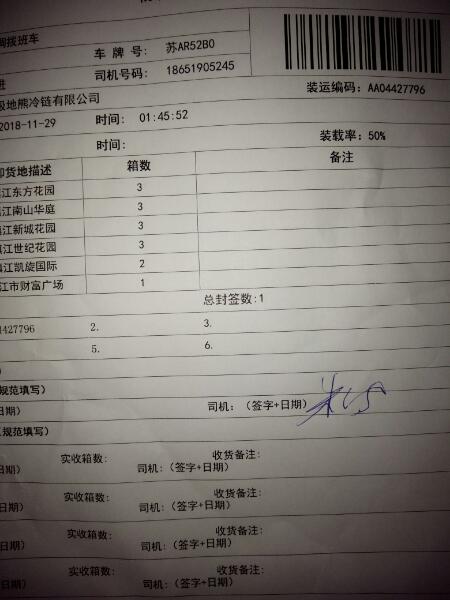 调拨班车
车牌号: 苏AR52B0
进 司机号码: 18651905245
极地熊冷链有限公司 装运编码: AA04427796
2018-11-29 时间: 01:45:52
时间: 装载率: 50%
卸货地描述 箱数 备注
江东方花园 3
江南山华庭 3
江新城花园 3
江世纪花园 3
江凯旋国际 2
江市财富广场 1
总封签数:1
4427796 2. 3.
5. 6.
)
规范填写)
日期) 司机: (签字+日期)
规范填写)
实收箱数: 收货备注:
日期) 司机: (签字+日期)
实收箱数: 收货备注:
日期) 司机: (签字+日期)
实收箱数: 收货备注:
日期) 司机: (签字+日期)
实收箱数: 收货备注:
日期) 司机: (签字+日期)